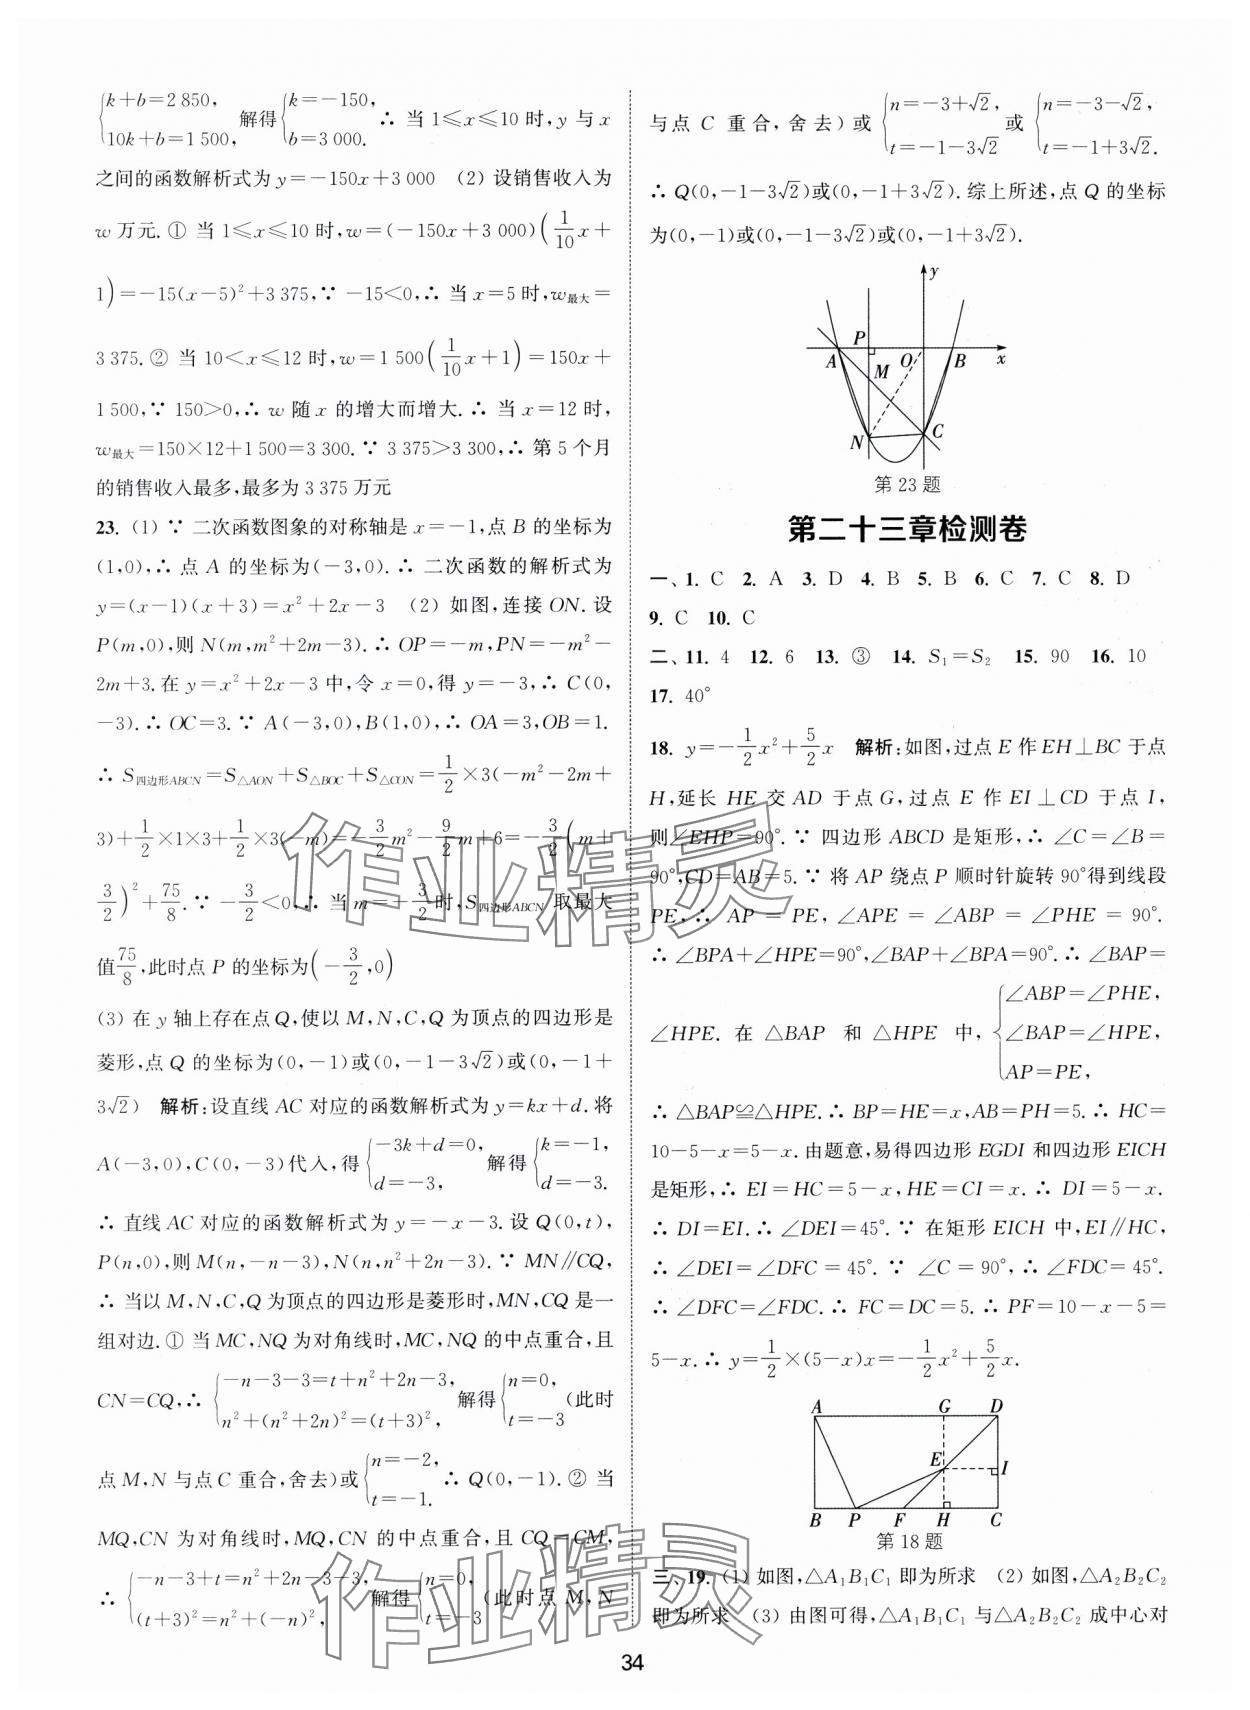 {k+b=2 850, 10k+b=1 500, 解得{k=-150, b=3 000. ∴ 当 1≤x≤10 时,y 与 x
之间的函数解析式为 y=-150x+3 000 (2) 设销售收入为
w 万元.① 当 1≤x≤10 时,w=(-150x+3 000)(1/10x+
1)=-15(x-5)²+3 375,∵ -15<0,∴ 当 x=5 时,w最大=
3 375.② 当 10<x≤12 时,w=1 500(1/10x+1)=150x+
1 500,∵ 150>0,∴ w 随 x 的增大而增大.∴ 当 x=12 时,
w最大=150×12+1 500=3 300.∵ 3 375>3 300,∴ 第 5 个月
的销售收入最多,最多为 3 375 万元
23. (1) ∵ 二次函数图象的对称轴是 x=-1,点 B 的坐标为
(1,0),∴ 点 A 的坐标为(-3,0).∴ 二次函数的解析式为
y=(x-1)(x+3)=x²+2x-3 (2) 如图,连接 ON.设
P(m,0),则 N(m,m²+2m-3).∴ OP=-m,PN=-m²-
2m+3.在 y=x²+2x-3 中,令 x=0,得 y=-3,∴ C(0,
-3).∴ OC=3.∵ A(-3,0),B(1,0),∴ OA=3,OB=1.
∴ S四边形ABCN=S△AON+S△BOC+S△CON=1/2×3(-m²-2m+
3)+1/2×1×3+1/2×3(-m)=-3/2m²-9/2m+6=-3/2(m+
3/2)²+75/8.∵ -3/2<0,∴ 当 m=-3/2时,S四边形ABCN取最大
值75/8,此时点 P 的坐标为(-3/2,0)
(3) 在 y 轴上存在点 Q,使以 M,N,C,Q 为顶点的四边形是
菱形,点 Q 的坐标为(0,-1)或(0,-1-3√2)或(0,-1+
3√2) 解析:设直线 AC 对应的函数解析式为 y=kx+d.将
A(-3,0),C(0,-3)代入,得{-3k+d=0, d=-3, 解得{k=-1, d=-3.
∴ 直线 AC 对应的函数解析式为 y=-x-3.设 Q(0,t),
P(n,0),则 M(n,-n-3),N(n,n²+2n-3).∵ MN∥CQ,
∴ 当以 M,N,C,Q 为顶点的四边形是菱形时,MN,CQ 是一
组对边.① 当 MC,NQ 为对角线时,MC,NQ 的中点重合,且
CN=CQ,∴ {-n-3-3=t+n²+2n-3, n²+(n²+2n)²=(t+3)², 解得{n=0, t=-3 (此时
点 M,N 与点 C 重合,舍去)或{n=-2, t=-1. ∴ Q(0,-1).② 当
MQ,CN 为对角线时,MQ,CN 的中点重合,且 CQ=CM,
∴ {-n-3+t=n²+2n-3-3, (t+3)²=n²+(-n)², 解得{n=0, t=-3 (此时点 M,N
与点 C 重合,舍去)或{n=-3+√2, t=-1-3√2 或{n=-3-√2, t=-1+3√2.
∴ Q(0,-1-3√2)或(0,-1+3√2).综上所述,点 Q 的坐标
为(0,-1)或(0,-1-3√2)或(0,-1+3√2).
y
P
A
O
B
x
M
N
C
第 23 题
第二十三章检测卷
一、1. C 2. A 3. D 4. B 5. B 6. C 7. C 8. D
9. C 10. C
二、11. 4 12. 6 13. ③ 14. S₁=S₂ 15. 90 16. 10
17. 40°
18. y=-1/2x²+5/2x 解析:如图,过点 E 作 EH⊥BC 于点
H,延长 HE 交 AD 于点 G,过点 E 作 EI⊥CD 于点 I,
则∠EHP=90°.∵ 四边形 ABCD 是矩形,∴ ∠C=∠B=
90°,CD=AB=5.∵ 将 AP 绕点 P 顺时针旋转 90°得到线段
PE,∴ AP=PE,∠APE=∠ABP=∠PHE=90°.
∴ ∠BPA+∠HPE=90°,∠BAP+∠BPA=90°.∴ ∠BAP=
∠HPE. 在 △BAP 和 △HPE 中,{∠ABP=∠PHE, ∠BAP=∠HPE, AP=PE,
∴ △BAP≌△HPE.∴ BP=HE=x,AB=PH=5.∴ HC=
10-5-x=5-x.由题意,易得四边形 EGDI 和四边形 EICH
是矩形,∴ EI=HC=5-x,HE=CI=x.∴ DI=5-x.
∴ DI=EI.∴ ∠DEI=45°.∵ 在矩形 EICH 中,EI∥HC,
∴ ∠DEI=∠DFC=45°.∵ ∠C=90°,∴ ∠FDC=45°.
∴ ∠DFC=∠FDC.∴ FC=DC=5.∴ PF=10-x-5=
5-x.∴ y=1/2×(5-x)x=-1/2x²+5/2x.
A G D
E
I
B P F H C
第 18 题
三、19. (1) 如图,△A₁B₁C₁ 即为所求 (2) 如图,△A₂B₂C₂
即为所求 (3) 由图可得,△A₁B₁C₁ 与△A₂B₂C₂ 成中心对
34
作业精灵
作业精灵